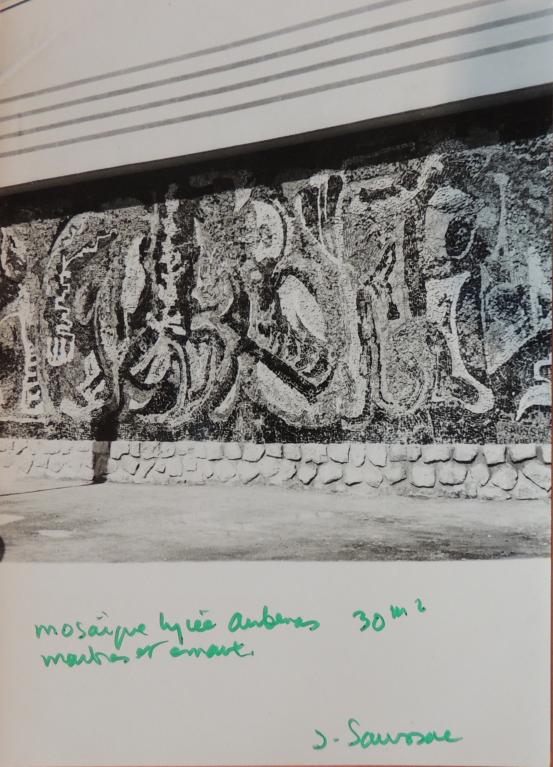 mosaïque lycée aubenas 30 m²
marbres et émaux.
J. Sauvsac